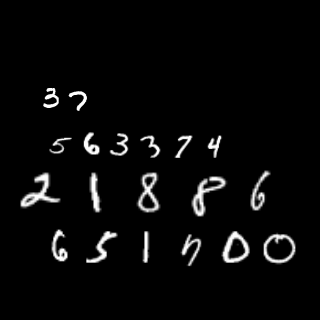 37
563374
21886
651700